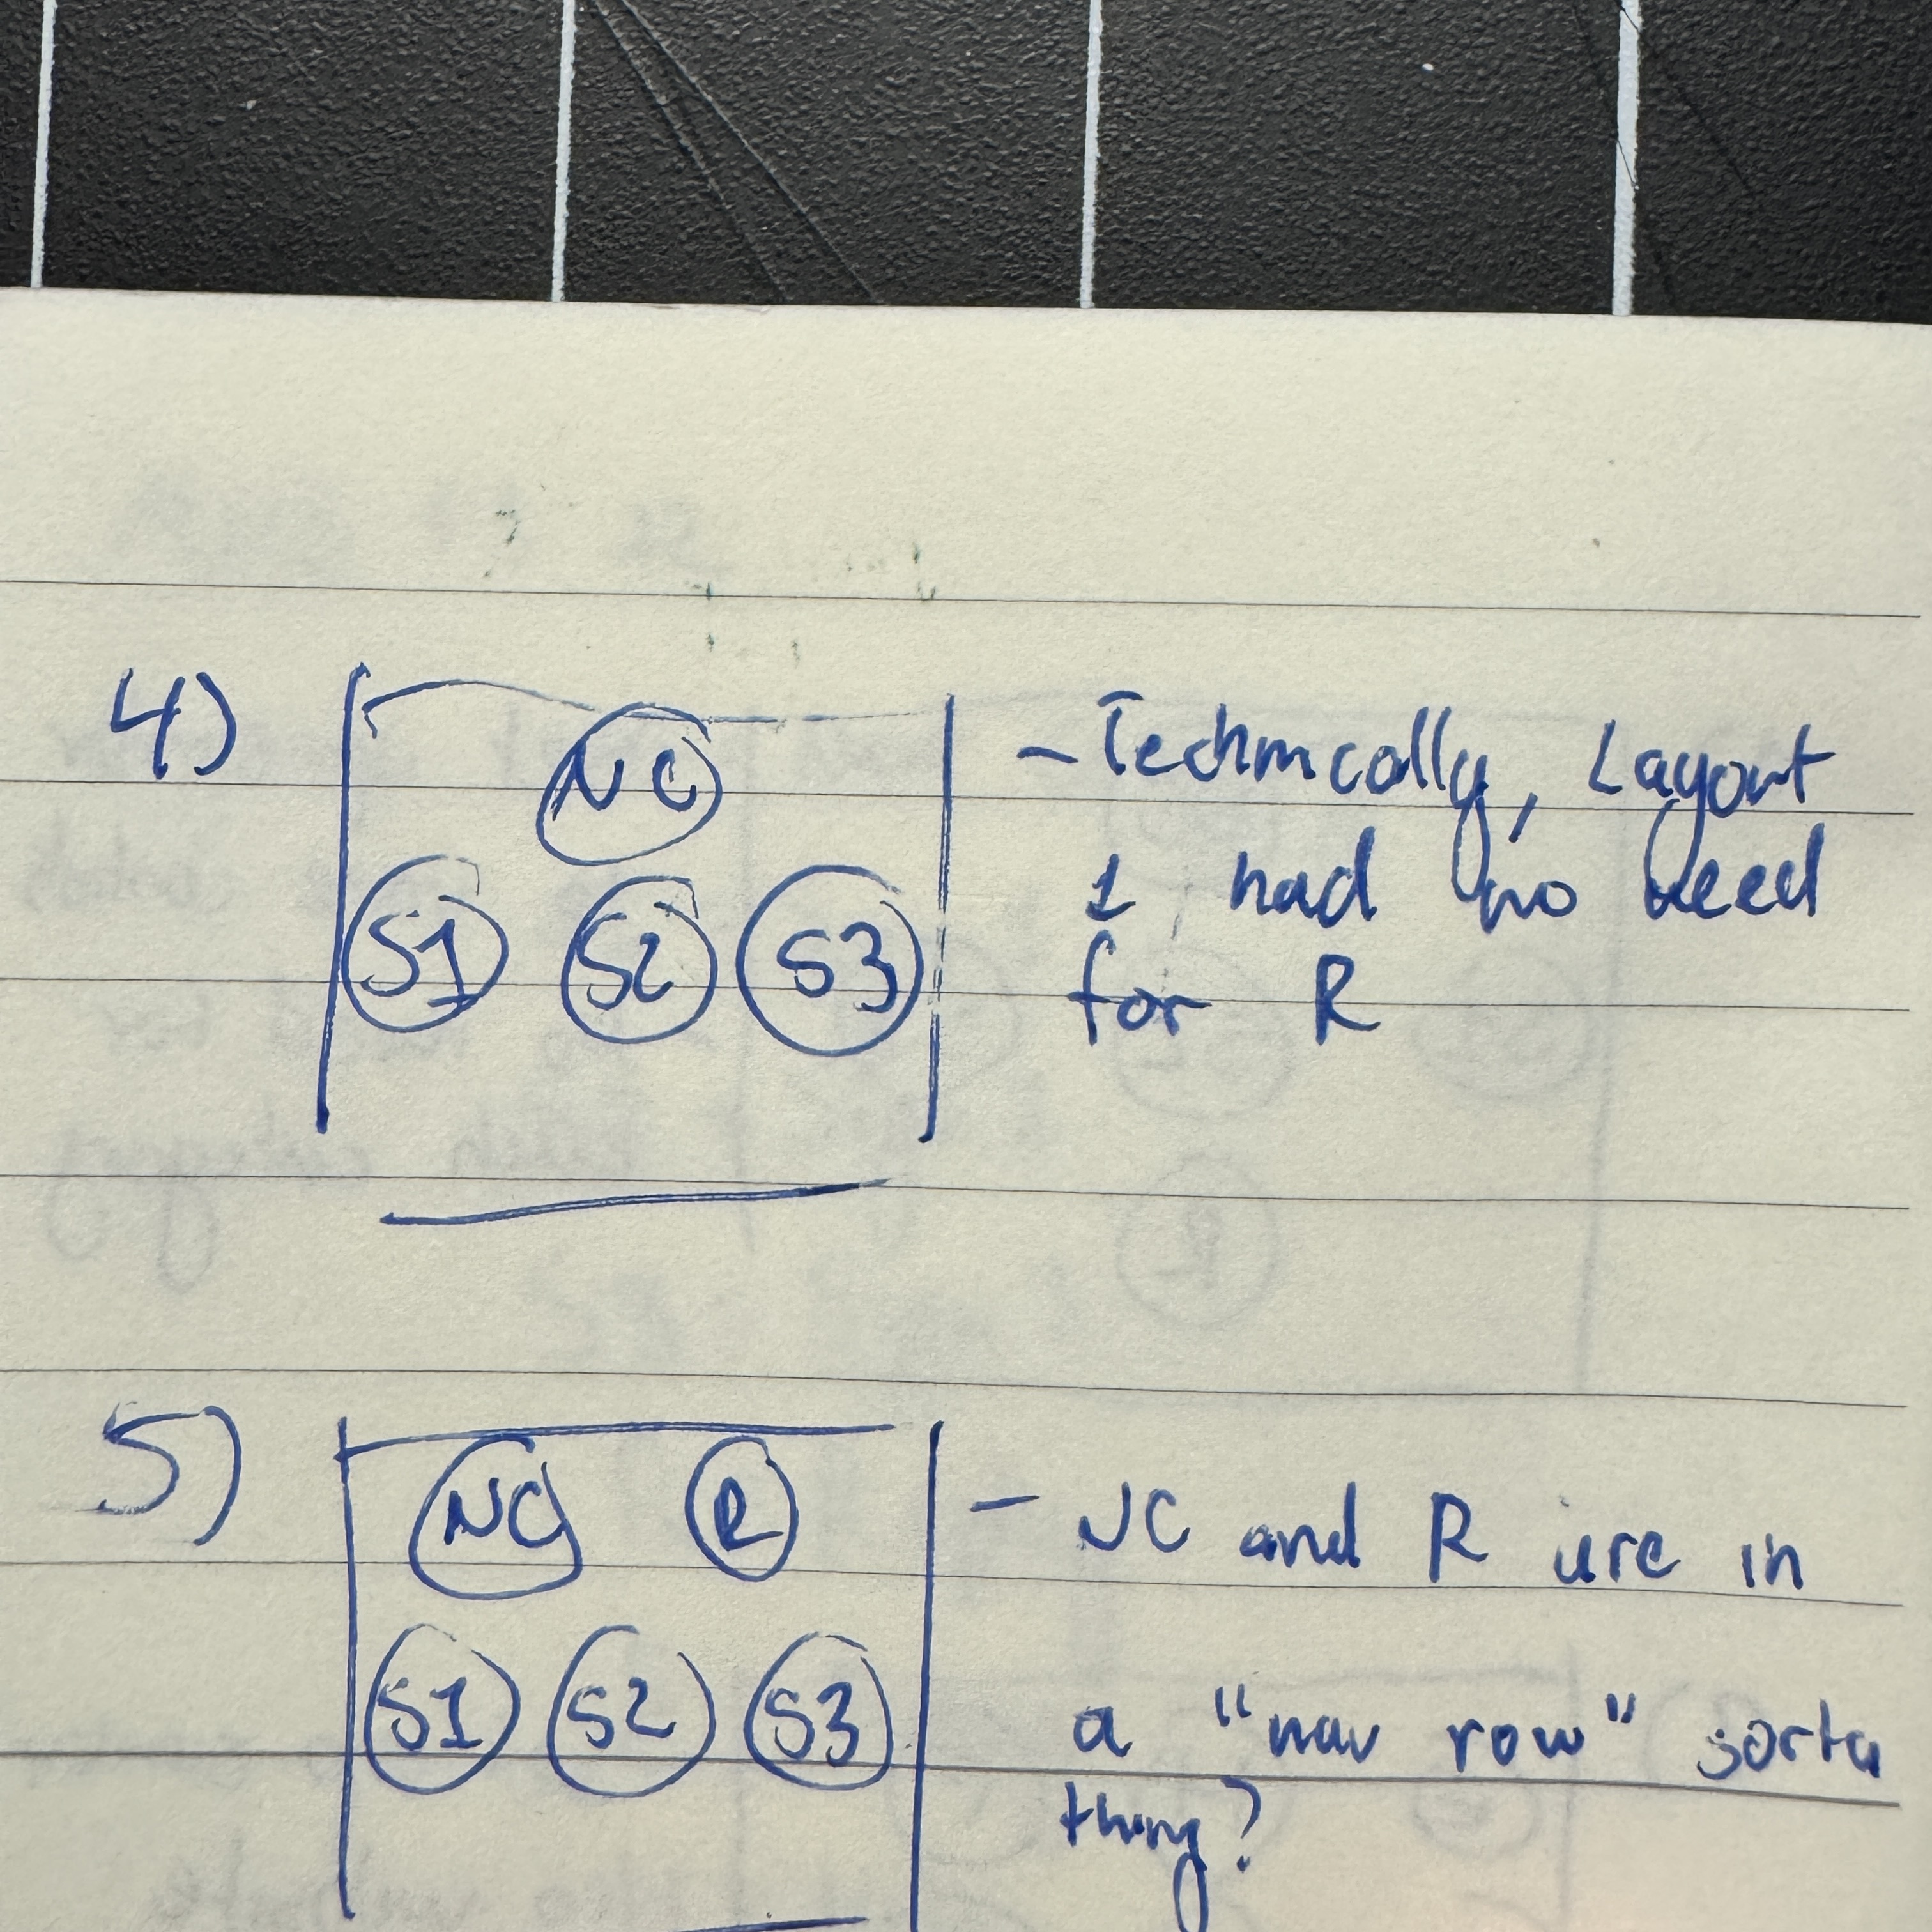 4)
NC
S1 S2 S3
- Technically, Layout
1 had no need
for R
5)
NC R
S1 S2 S3
- NC and R are in
a "nav row" sorta
thing?